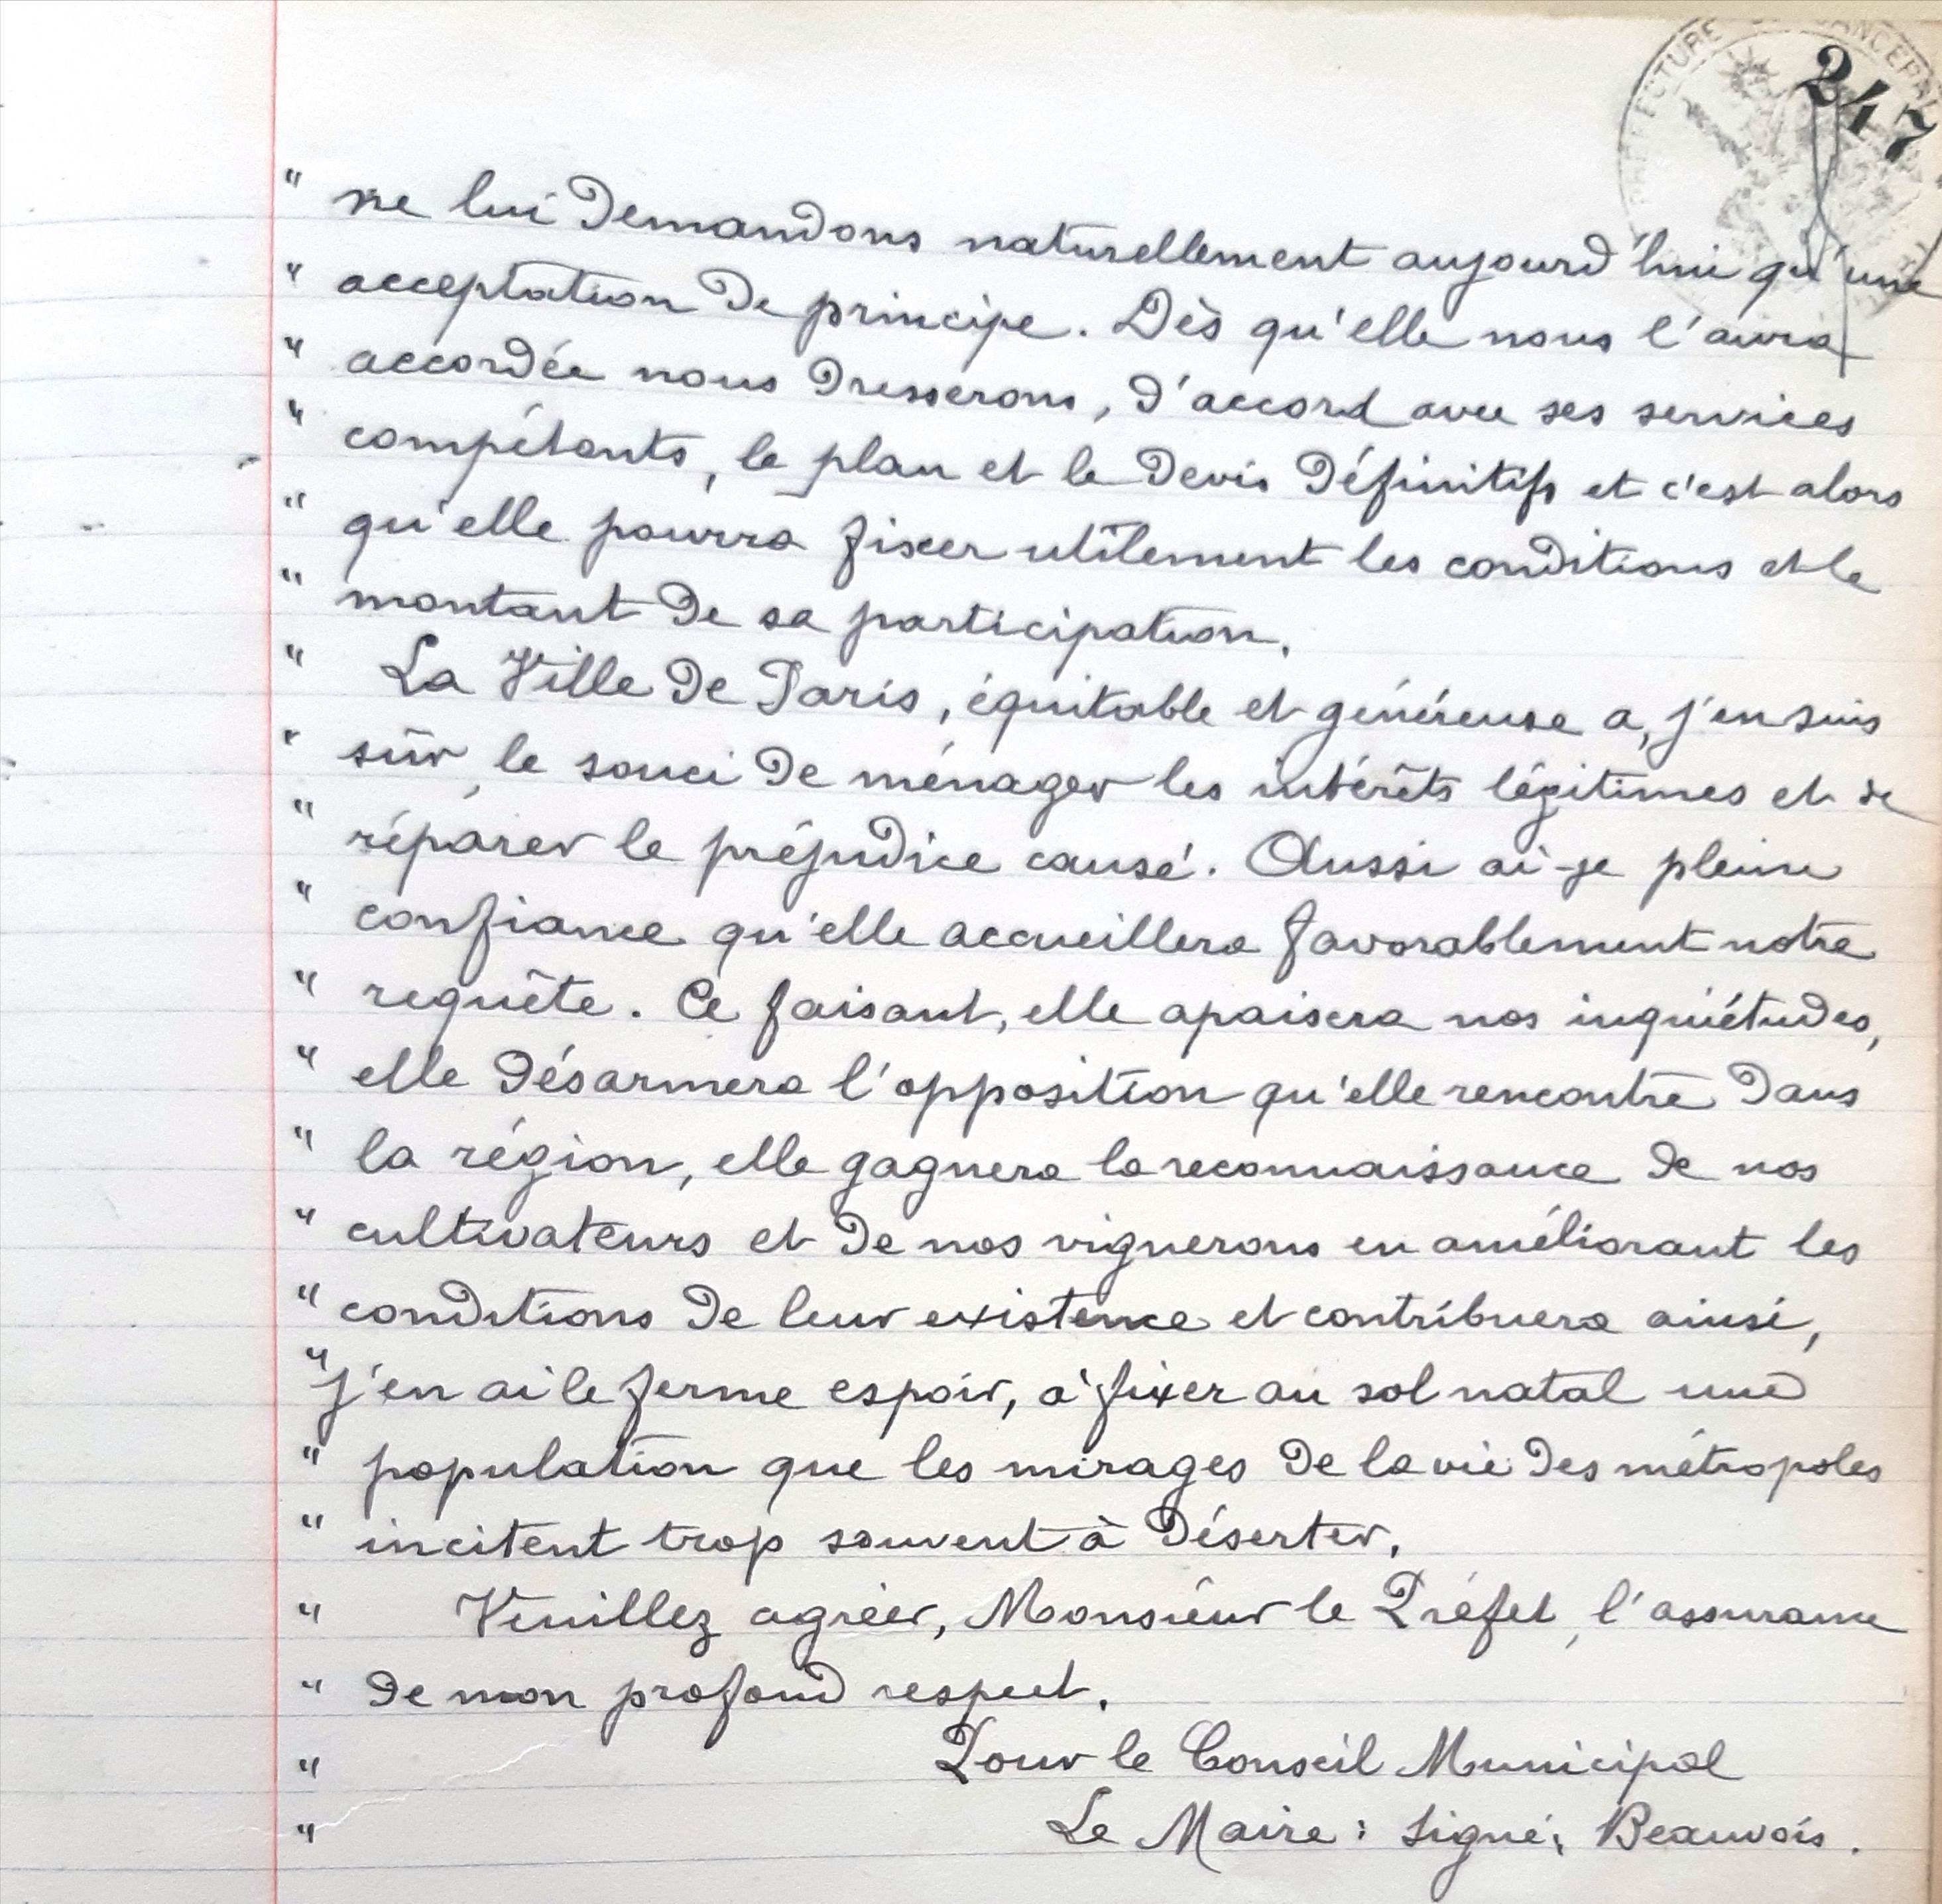 247
" ne lui demandons naturellement aujourd'hui qu'une
" acceptation de principe. Dès qu'elle nous l'aura
" accordée nous dresserons, d'accord avec ses services
" compétents, le plan et le devis définitifs et c'est alors
" qu'elle pourra fixer utilement les conditions et le
" montant de sa participation.
" La Ville de Paris, équitable et généreuse a, j'en suis
" sûr, le souci de ménager les intérêts légitimes et de
" réparer le préjudice causé. Aussi ai-je pleine
" confiance qu'elle accueillera favorablement notre
" requête. Ce faisant, elle apaisera nos inquiétudes,
" elle désarmera l'opposition qu'elle rencontre dans
" la région, elle gagnera la reconnaissance de nos
" cultivateurs et de nos vignerons en améliorant les
" conditions de leur existence et contribuera ainsi,
" j'en ai le ferme espoir, à fixer au sol natal une
" population que les mirages de la vie des métropoles
" incitent trop souvent à déserter.
" Veuillez agréer, Monsieur le Préfet, l'assurance
" de mon profond respect.
" Pour le Conseil Municipal
" Le Maire : signé, Beauvois.